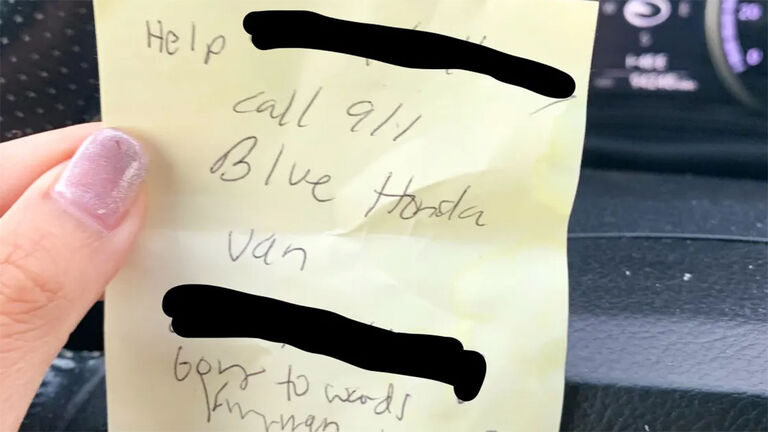 Help
call 911
Blue Honda
van
Going to words
20